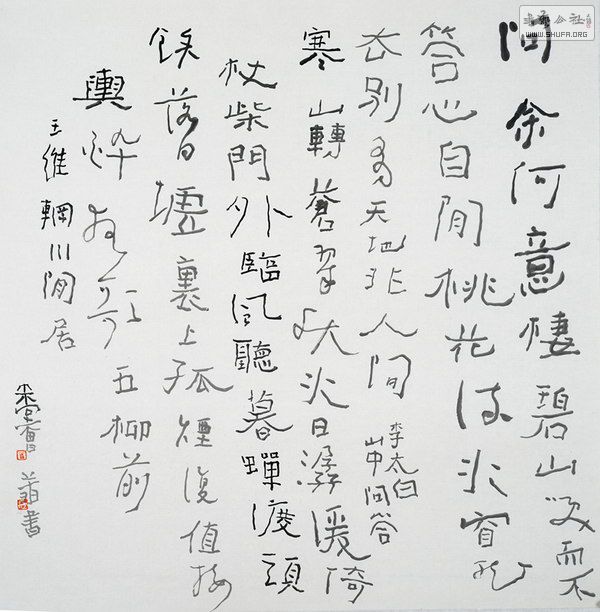 問余何意棲碧山笑而不
答心自閒桃花流水窅然
去別有天地非人間
李太白
山中問答
寒山轉蒼翠秋水日潺湲倚
杖柴門外臨風聽暮蟬渡頭
餘落日墟裏上孤煙復值接
輿醉狂歌五柳前
王維輞川閒居
書
WWW.SHUFA.ORG